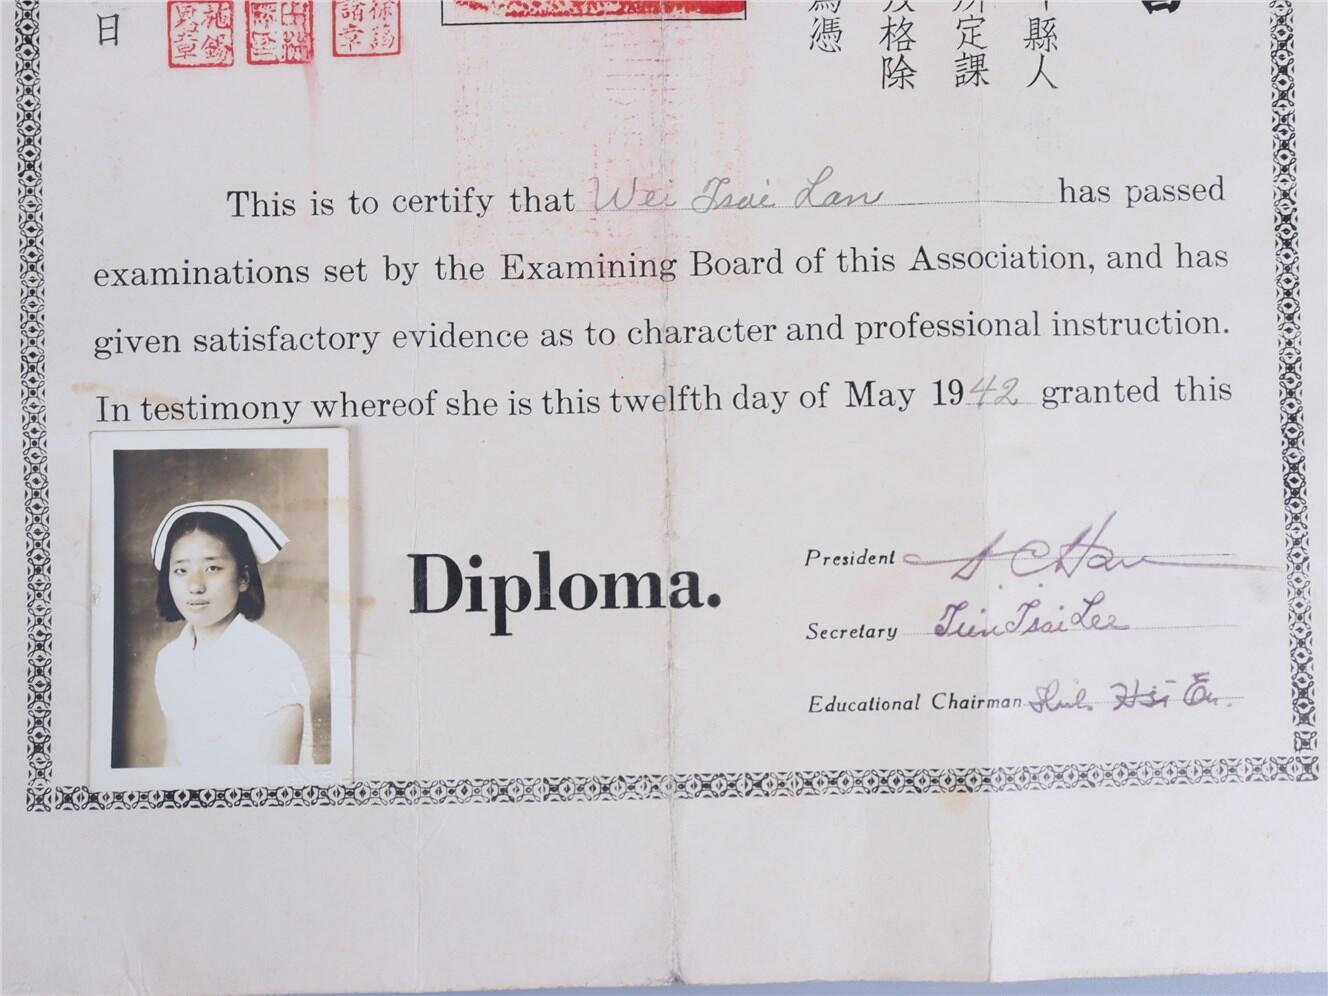 縣人
所定課
及格除
為憑
日
施錫
恩章
徐藹
諸章
This is to certify that Wei Tsai Lan has passed
examinations set by the Examining Board of this Association, and has
given satisfactory evidence as to character and professional instruction.
In testimony whereof she is this twelfth day of May 1942 granted this
Diploma.
President
Secretary Tien Tsai Lee
Educational Chairman Shih Hsi En.